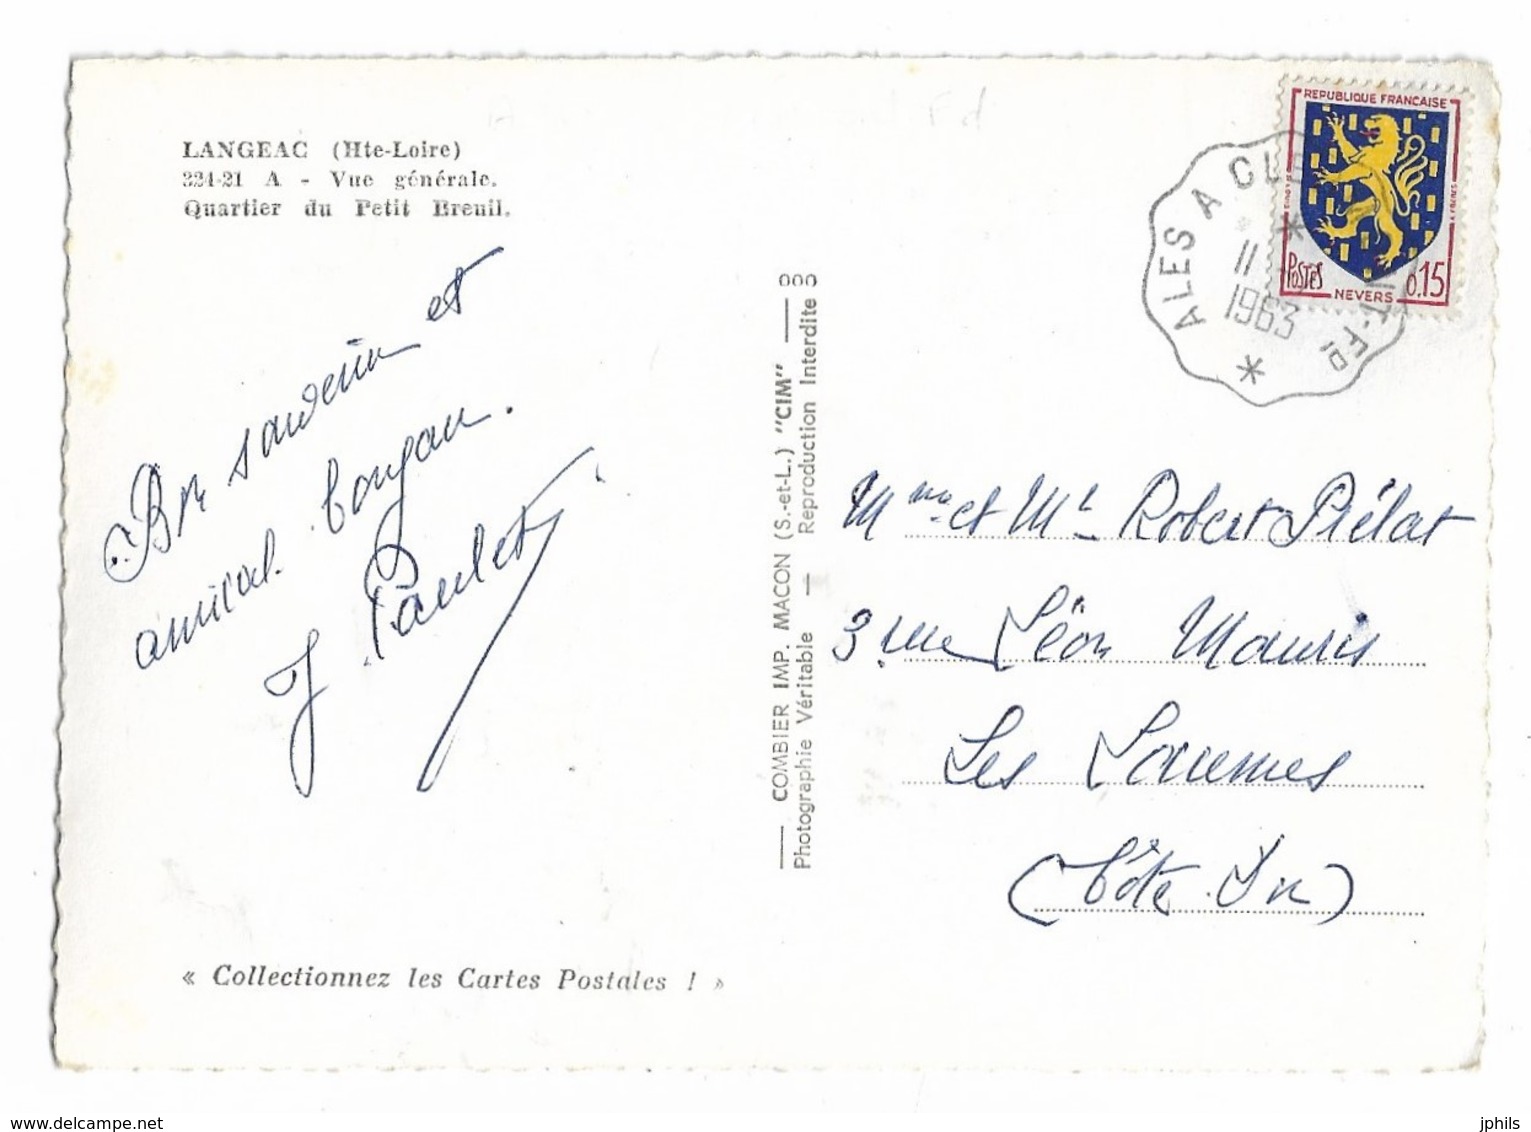 LANGEAC (Hte-Loire)
324-21 A - Vue générale.
Quartier du Petit Breuil.
Bon souvenir et
amical bonjour.
J. Paulet
« Collectionnez les Cartes Postales ! »
COMBIER IMP. MACON (S.-et-L.) "CIM"
Photographie Véritable — Reproduction Interdite
REPUBLIQUE FRANCAISE
POSTES
0,15
NEVERS
ALES A CLE T-FD
11
1963
Mme et Mr Robert Piélat
3 rue Léon Mauris
Les Laumes
(Côte d'Or)
www.delcampe.net
jphils